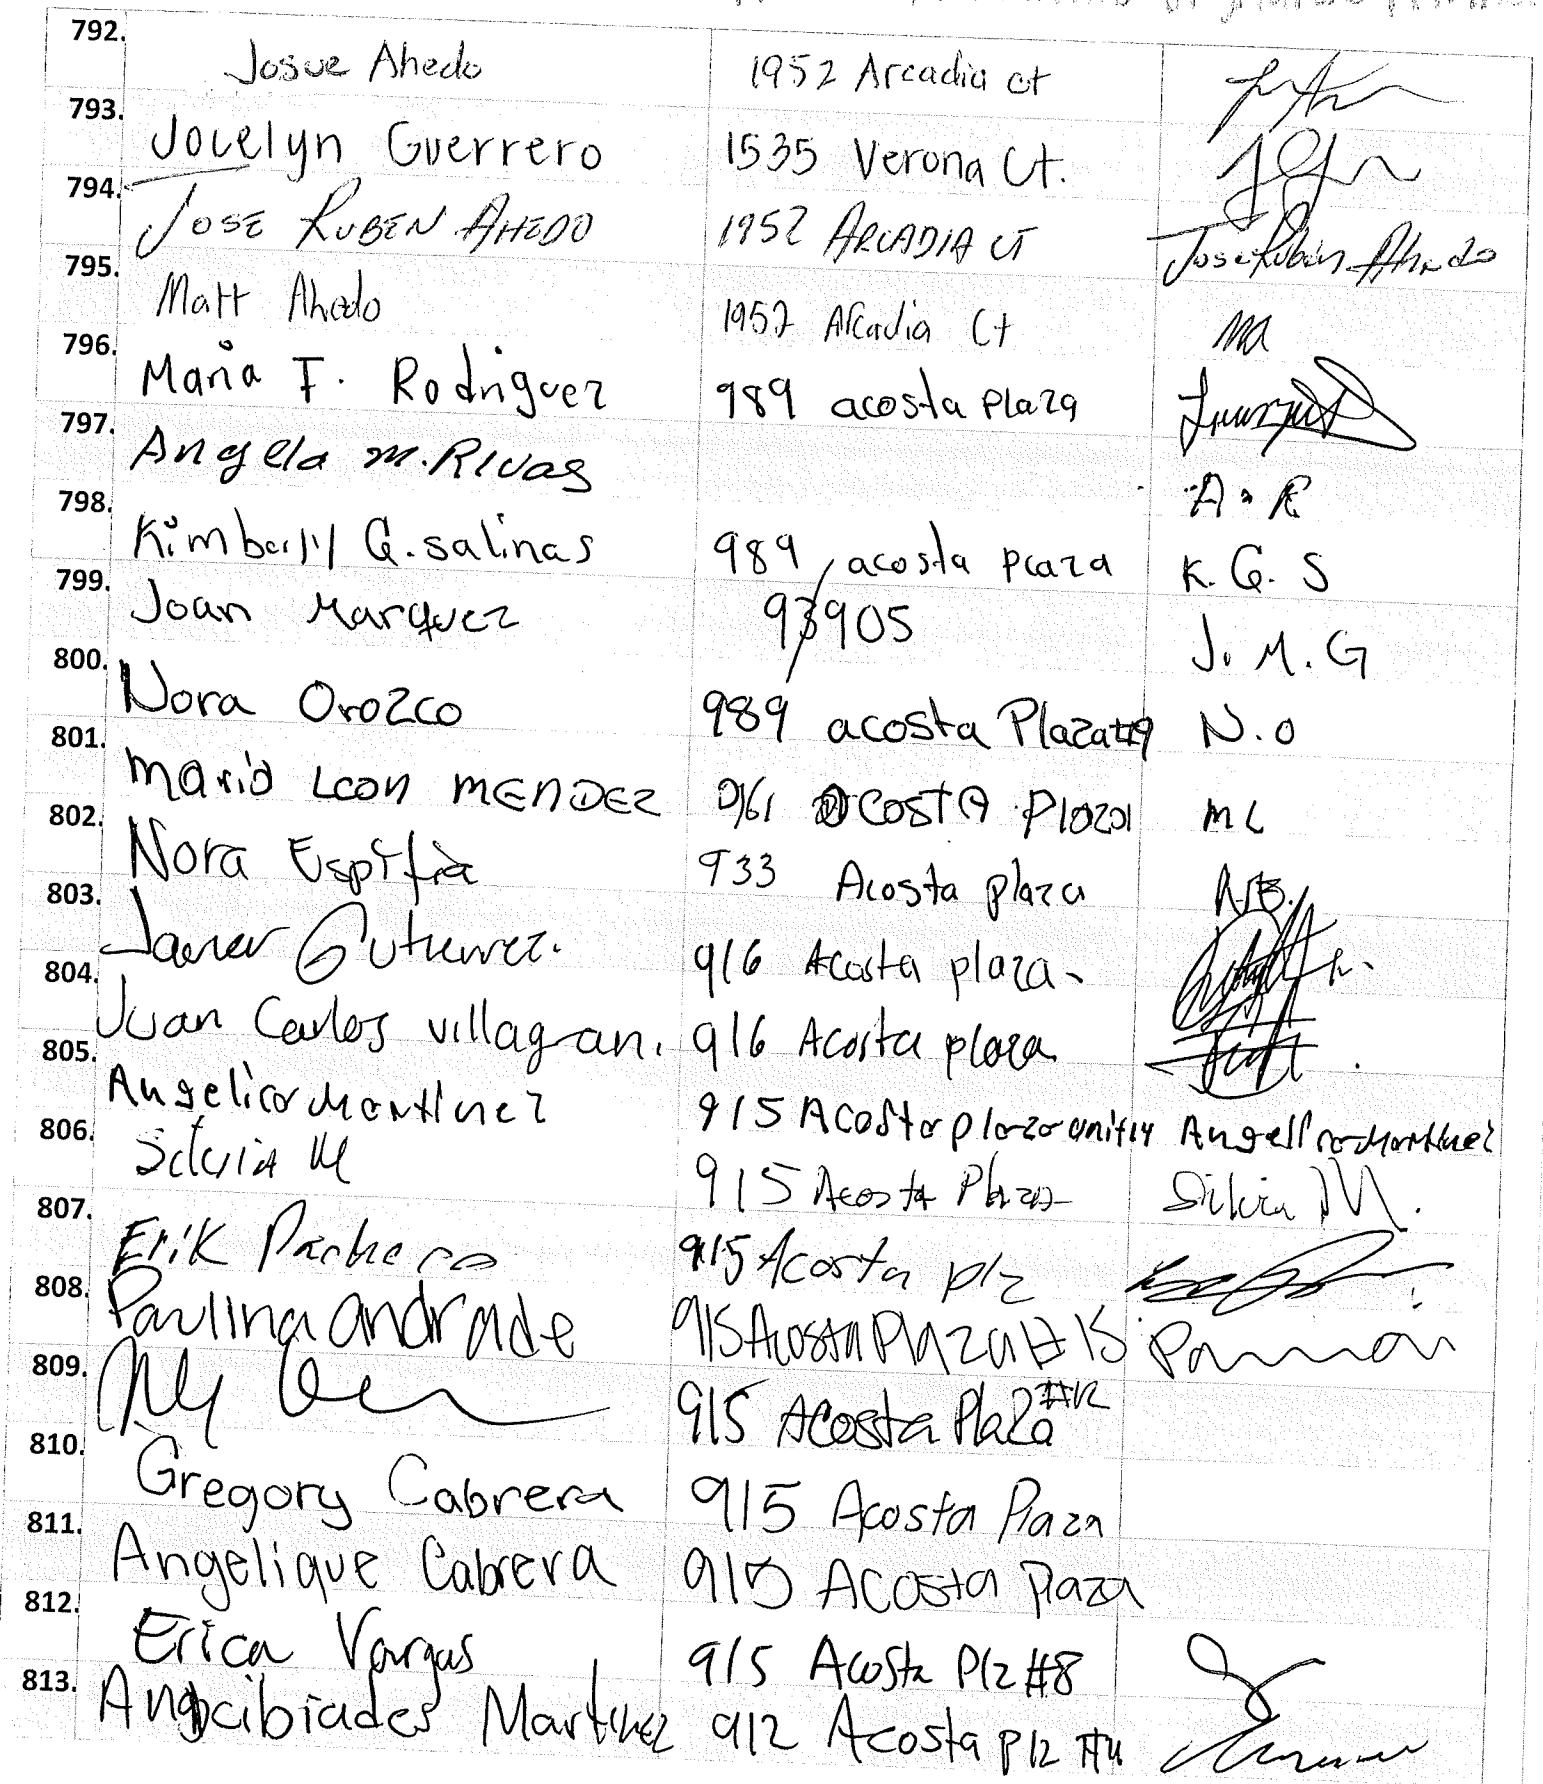 792. Josue Ahedo 1952 Arcadia ct
793. Jocelyn Guerrero 1535 Verona Ct.
794. JOSE RUBEN AHEDO 1952 ARCADIA CT Jose Ruben Ahedo
795. Matt Ahedo 1952 Arcadia Ct MA
796. Maria F. Rodriguez 989 acosta plaza
797. Angela M. Rivas A. R
798. Kimberly G. salinas 989 acosta plaza K. G. S
799. Joan Marquez 93905 J. M. G
800. Nora Orozco 989 acosta Plaza #9 N. O
801. Mario Leon MENDEZ 961 Acosta Plaza ML
802. Nora 933 Acosta plaza
803. Javier Gutierrez. 916 Acosta plaza
804. Juan Carlos villagran. 916 Acosta plaza
805. Angelica Martinez 915 Acosta plaza unit 14 Angelica Martinez
806. Silvia M 915 Acosta Plaza Silvia M.
807. Erik Pacheco 915 Acosta plz
808. Paulina andrade 915 Acosta Plaza # 15
809. 915 Acosta Plaza #12
810. Gregory Cabrera 915 Acosta Plaza
811. Angelique Cabrera 915 Acosta Plaza
812. Erica Vargas 915 Acosta Plz #8
813. Martinez 912 Acosta plz